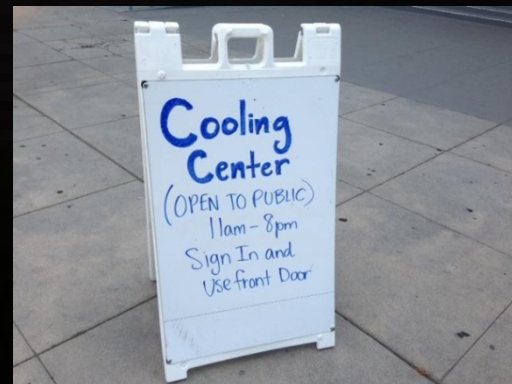 Cooling
Center
(OPEN TO PUBLIC)
11am - 8pm
Sign In and
Use front Door